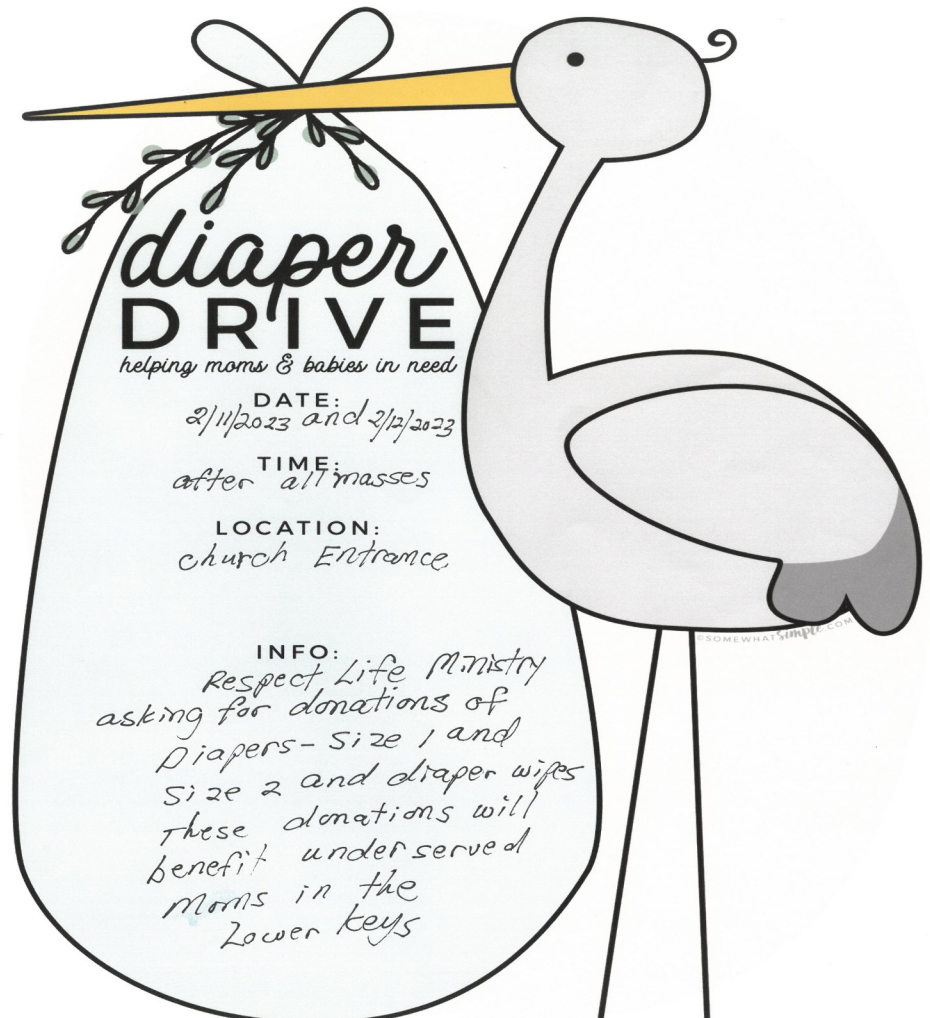 diaper
DRIVE
helping moms & babies in need
DATE:
2/11/2023 and 2/12/2023
TIME:
after all masses
LOCATION:
church Entrance
INFO:
Respect Life Ministry
asking for donations of
Diapers - Size 1 and
Size 2 and diaper wipes
These donations will
benefit underserved
Moms in the
Lower Keys
©SOMEWHATSimple.COM